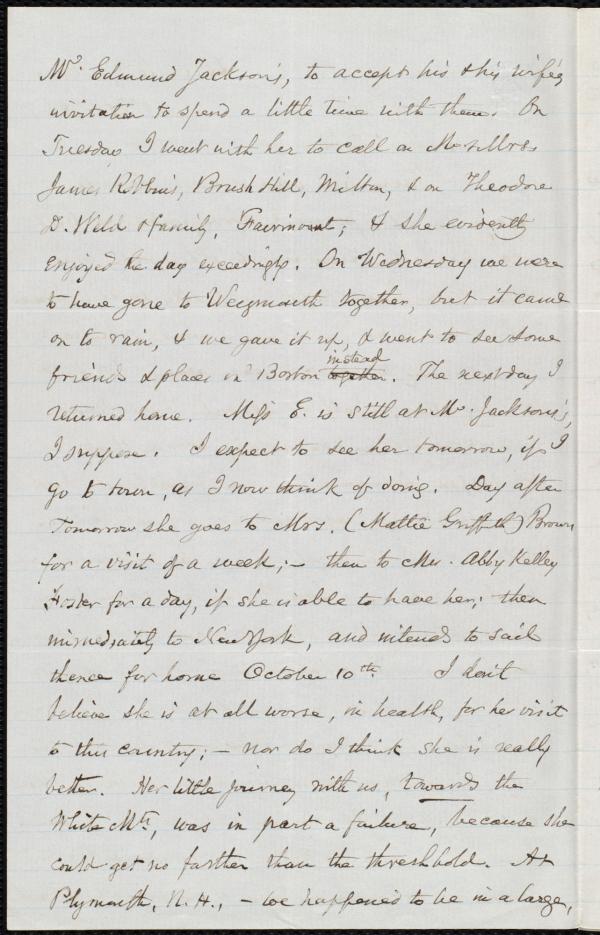 Mr. Edmund Jackson's, to accept his & his wife's
invitation to spend a little time with them. On
Tuesday I went with her to call on Mr & Mrs
James Robbins, Brush Hill, Milton, & on Theodore
D. Weld & family, Fairmount; & she evidently
enjoyed the day exceedingly. On Wednesday we were
to have gone to Weymouth together, but it came
on to rain, & we gave it up, & went to see some
instead
friends & places in Boston together. The next day I
returned home. Miss E. is still at Mr. Jackson's,
I suppose. I expect to see her tomorrow, if I
go to town, as I now think of doing. Day after
Tomorrow she goes to Mrs. (Mattie Griffith) Brown
for a visit of a week; – then to Mrs. Abby Kelley
Foster for a day, if she is able to have her; then
immediately to New York, and intends to sail
thence for home October 10th. I don't
believe she is at all worse, in health, for her visit
to this country; – nor do I think she is really
better. Her little journey with us, towards the
White Mts, was in part a failure, because she
could get no farther than the threshhold. At
Plymouth, N.H., – we happened to be in a large,